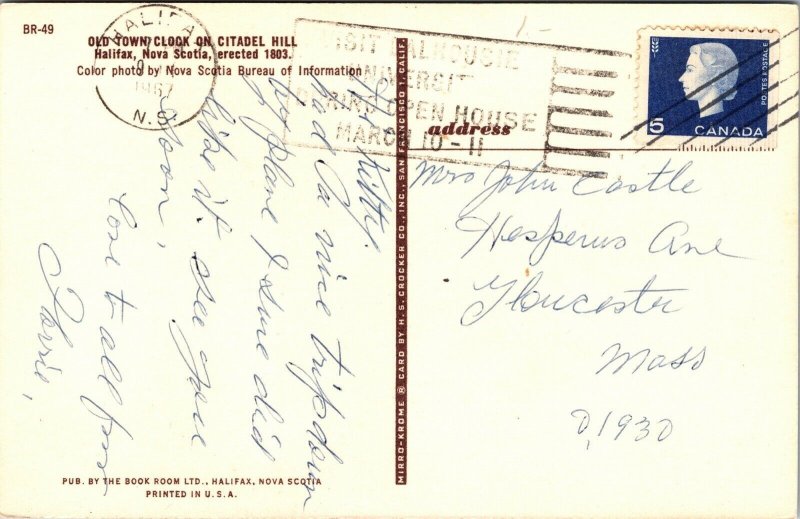 BR-49
OLD TOWN CLOCK ON CITADEL HILL
Halifax, Nova Scotia, erected 1803.
Color photo by Nova Scotia Bureau of Information
HALIFAX
1967
N.S.
VISIT DALHOUSIE
UNIVERSITY
DURING OPEN HOUSE
MARCH 10-11
5
CANADA
POSTES POSTAGE
address
Kitty.
had a nice trip down
by plane I sure did
like it. see you
soon,
Love to all from
MIRRO-KROME ® CARD BY H. S. CROCKER CO., INC., SAN FRANCISCO 1, CALIF.
Mrs John Castle
Hesperus Ave
Gloucester
Mass
0,1930
PUB. BY THE BOOK ROOM LTD., HALIFAX, NOVA SCOTIA
PRINTED IN U.S.A.